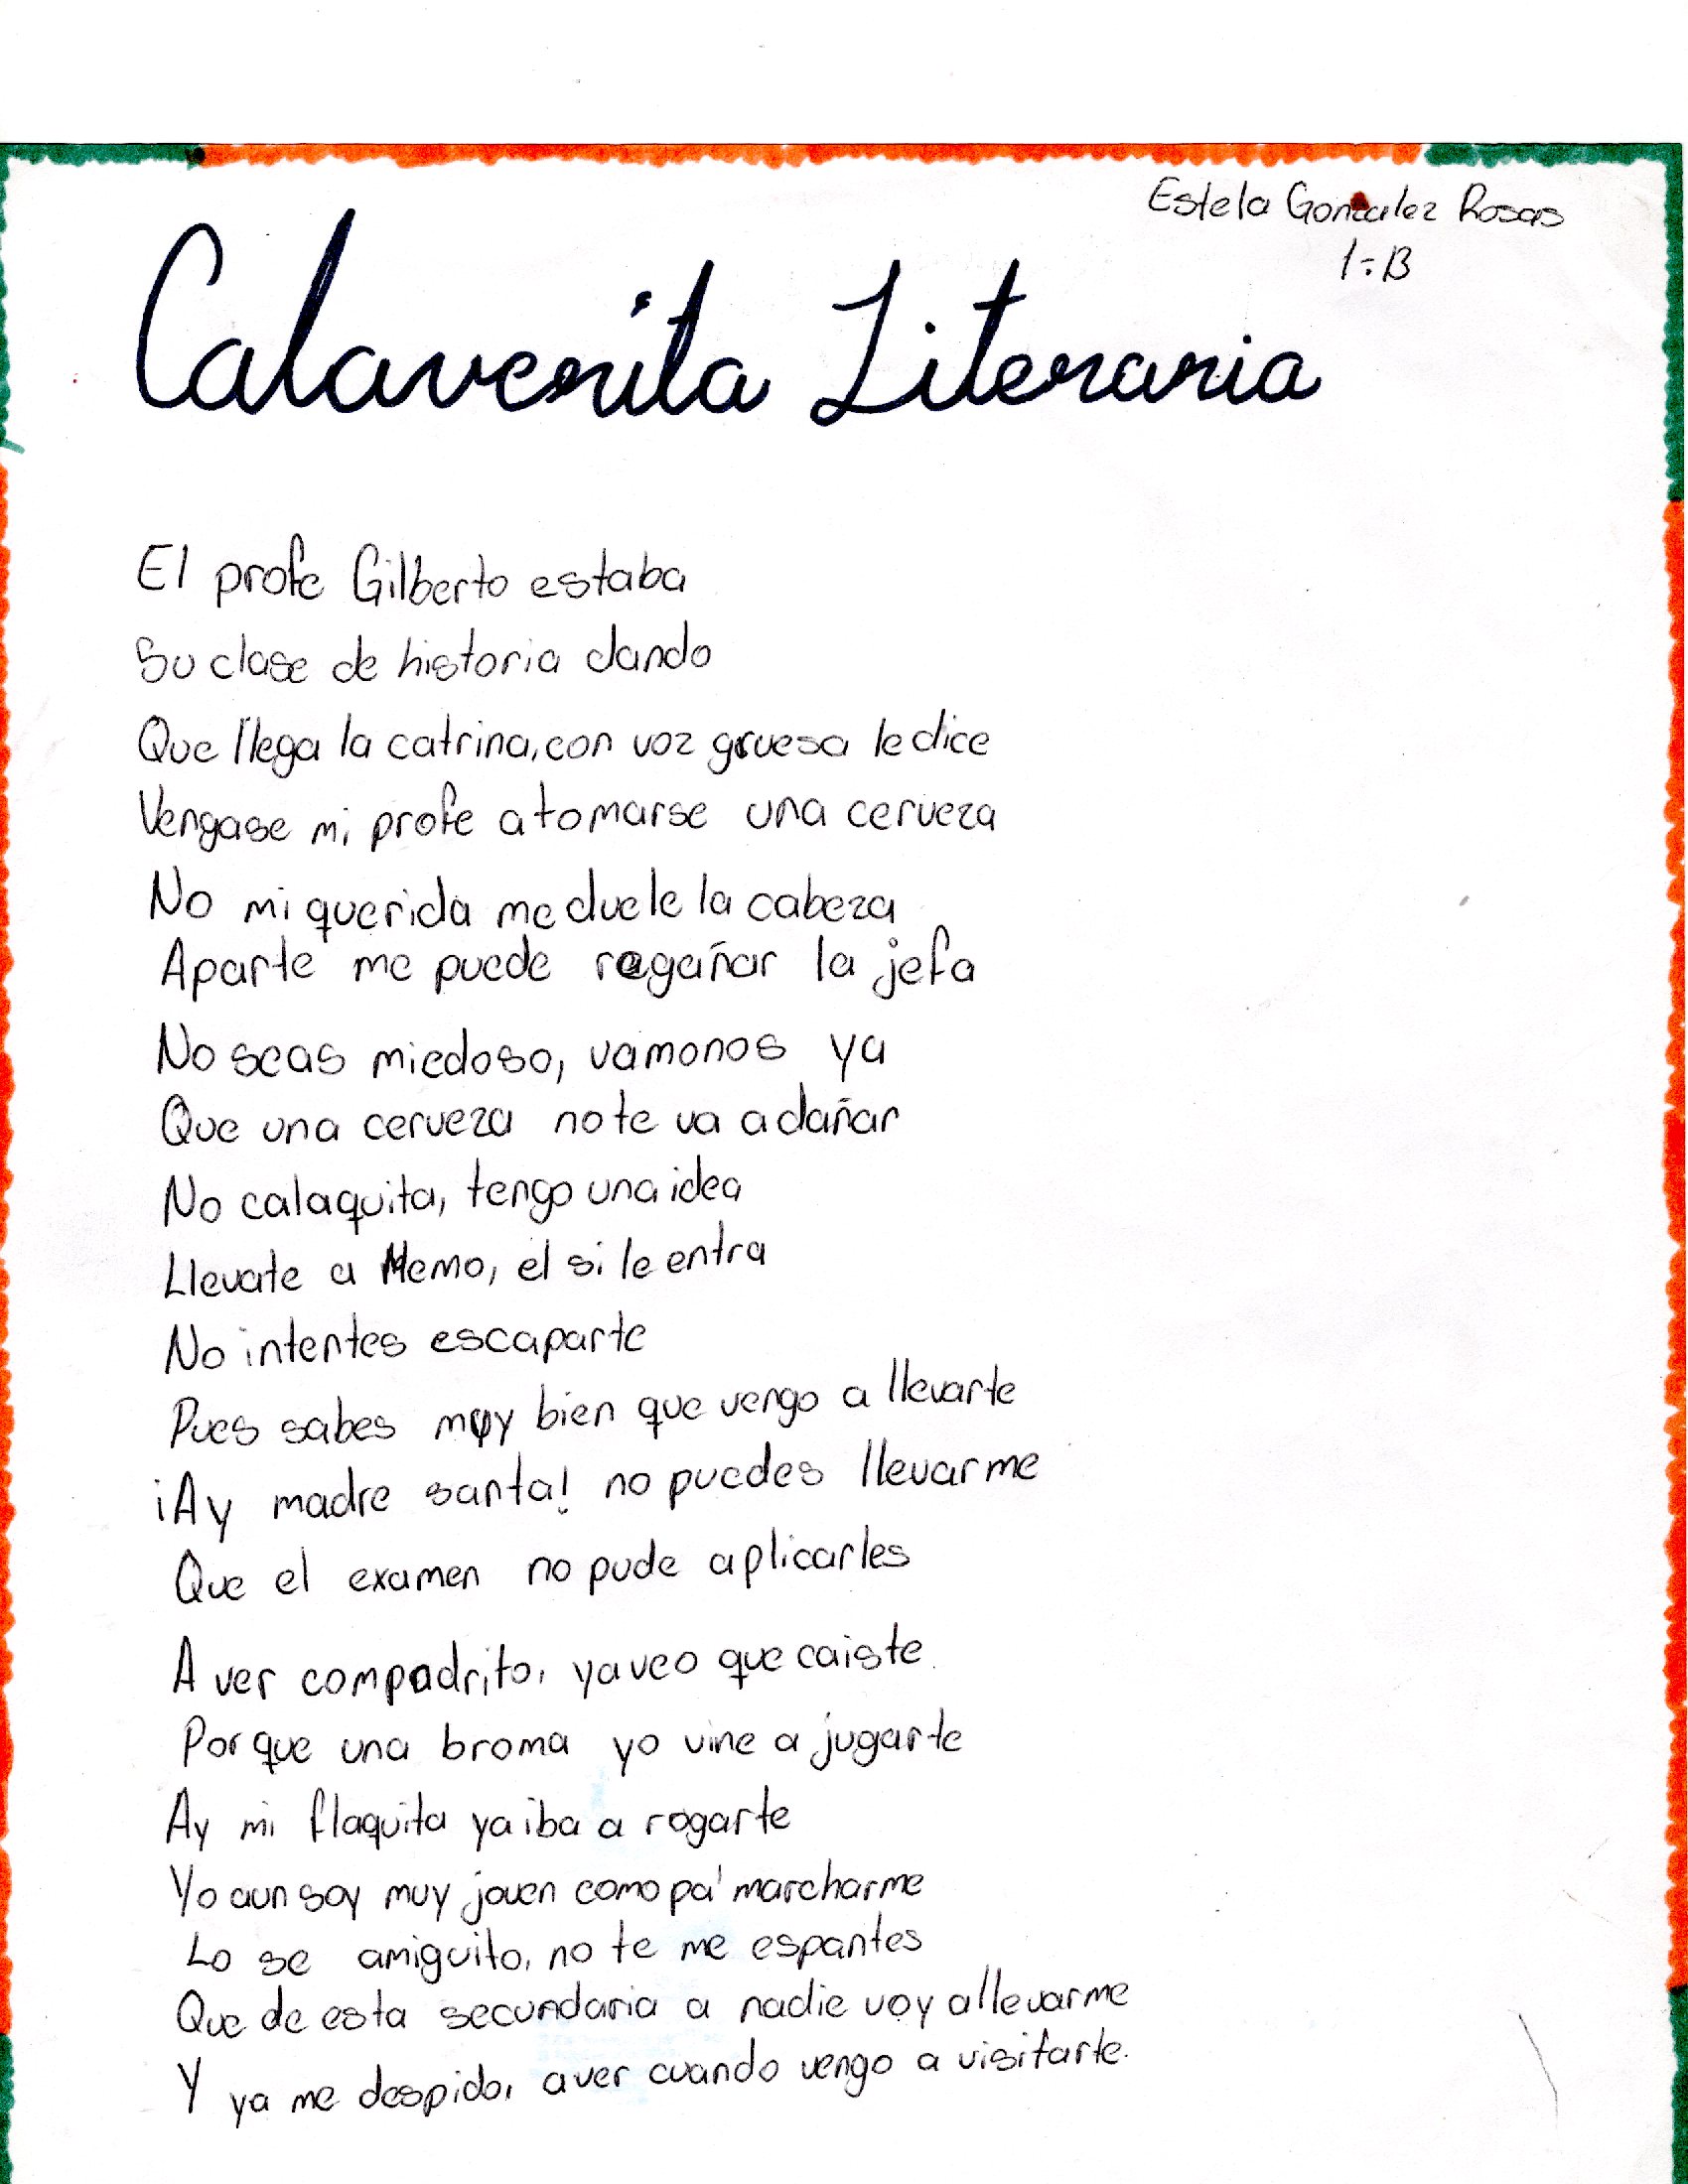 Estela Gonzalez Rosas
1-B
Calaverita Literaria
El profe Gilberto estaba
Su clase de historia dando
Que llega la catrina, con voz gruesa le dice
Vengase mi profe a tomarse una cerveza
No mi querida me duele la cabeza
Aparte me puede regañar la jefa
No seas miedoso, vamonos ya
Que una cerveza no te va a dañar
No calaquita, tengo una idea
Llevate a Memo, el si le entra
No intentes escaparte
Pues sabes muy bien que vengo a llevarte
¡Ay madre santa! no puedes llevarme
Que el examen no pude aplicarles
A ver compadrito, ya veo que caiste
Por que una broma yo vine a jugarte
Ay mi flaquita ya iba a rogarte
Yo aun soy muy joven como pa' marcharme
Lo se amiguito, no te me espantes
Que de esta secundaria a nadie voy a llevarme
Y ya me despido, a ver cuando vengo a visitarte.